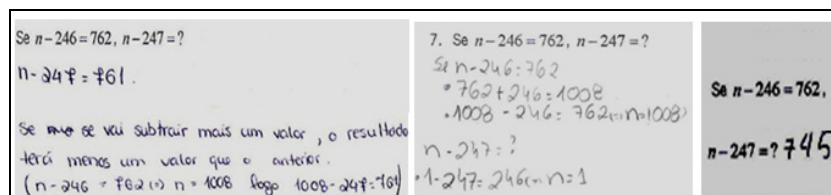 Se n – 246 = 762, n – 247 = ?
n - 247 = 761.
Se se vai subtrair mais um valor, o resultado
terá menos um valor que o anterior.
(n - 246 = 762 (=) n = 1008 logo 1008 - 247 = 761)
7. Se n – 246 = 762, n – 247 = ?
Se n - 246 = 762
• 762 + 246 = 1008
• 1008 - 246 = 762 (=) n = 1008)
n - 247 = ?
• 1 - 247 = 246 (=) n = 1
Se n – 246 = 762,
n – 247 = ? 745